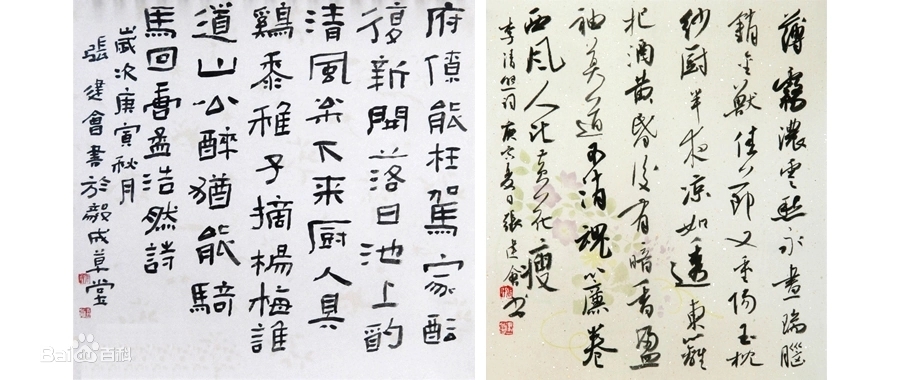 府僚能枉駕家醖
復新開落日池上酌
清風枀下来厨人具
鷄黍稚子摘楊梅誰
道山公醉猶能騎
馬回孟浩然詩
歲次庚寅秋月
張建會書於毅成草堂
薄霧濃雲愁永晝瑞腦
銷金獸佳節又重陽玉枕
紗厨半夜凉如透東籬
把酒黄昏後有暗香盈
袖莫道不消魂簾卷
西風人比黄花瘦
李清照詞庚寅夏日張建會书
Baidu百科